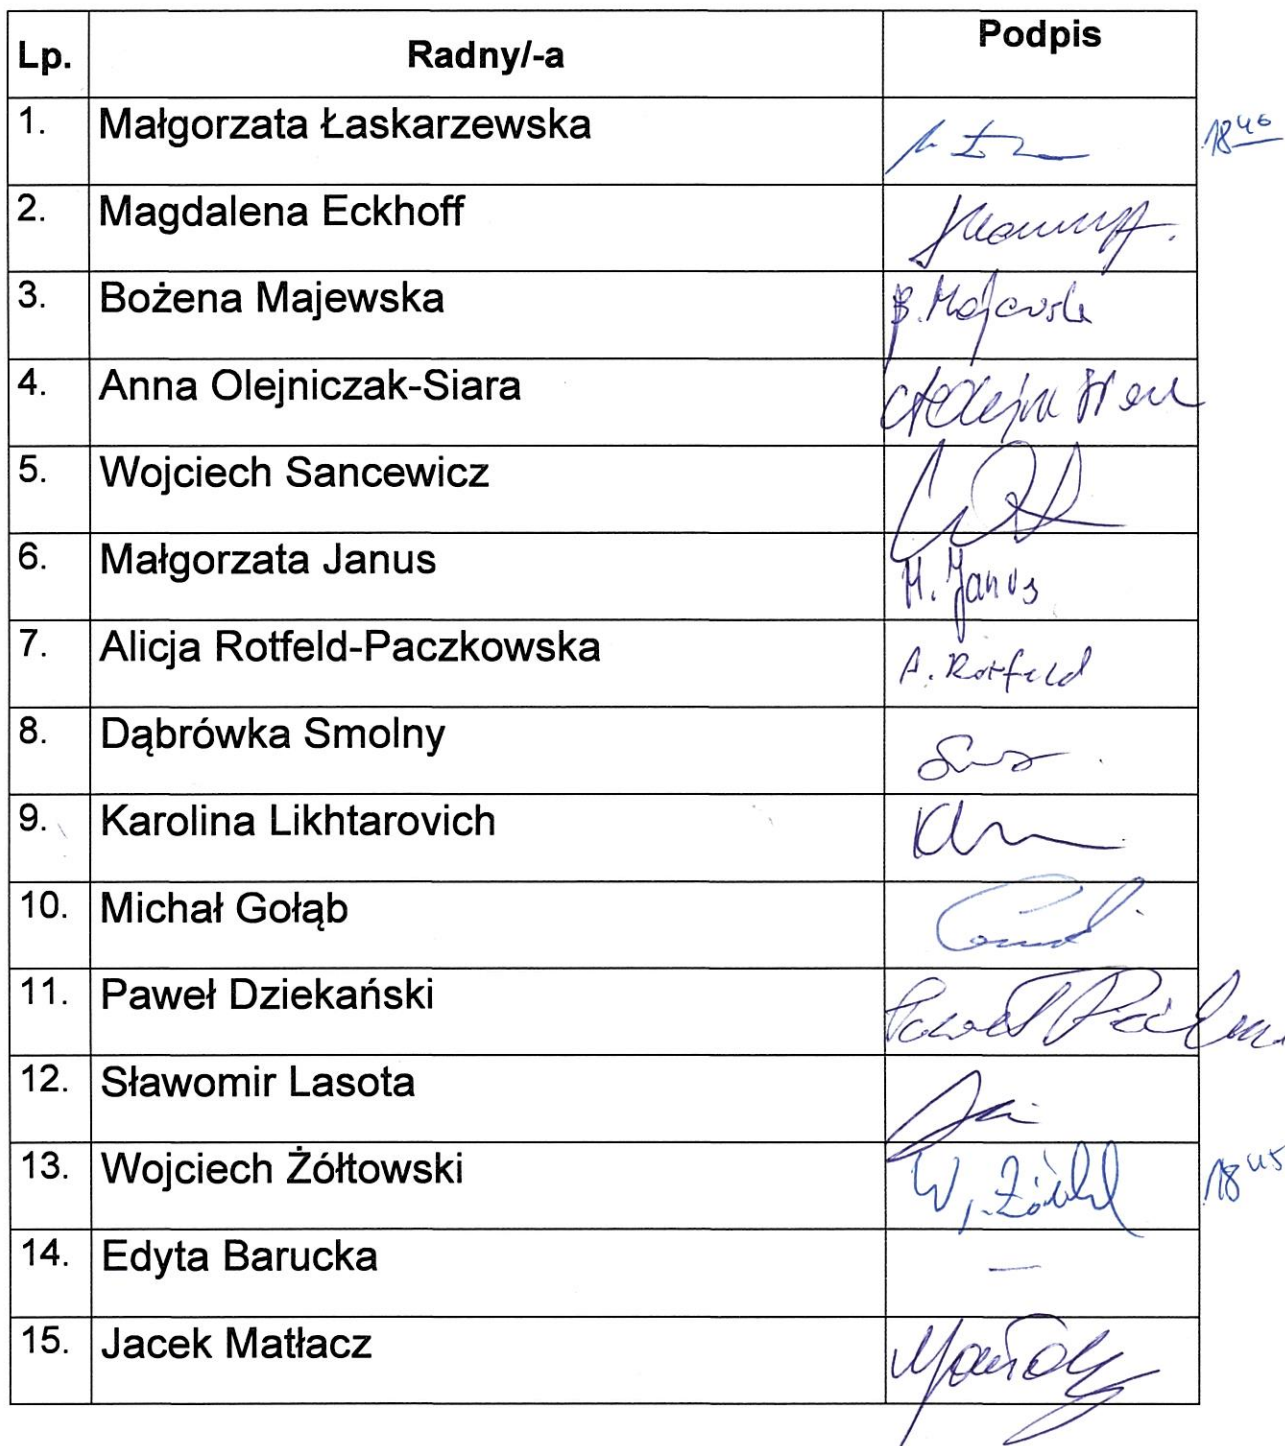 Lp. Radny/-a Podpis
1. Małgorzata Łaskarzewska 18 46
2. Magdalena Eckhoff
3. Bożena Majewska B. Majewska
4. Anna Olejniczak-Siara
5. Wojciech Sancewicz
6. Małgorzata Janus M. Janus
7. Alicja Rotfeld-Paczkowska A. Rotfeld
8. Dąbrówka Smolny
9. Karolina Likhtarovich
10. Michał Gołąb
11. Paweł Dziekański
12. Sławomir Lasota
13. Wojciech Żółtowski 18 45
14. Edyta Barucka —
15. Jacek Matłacz